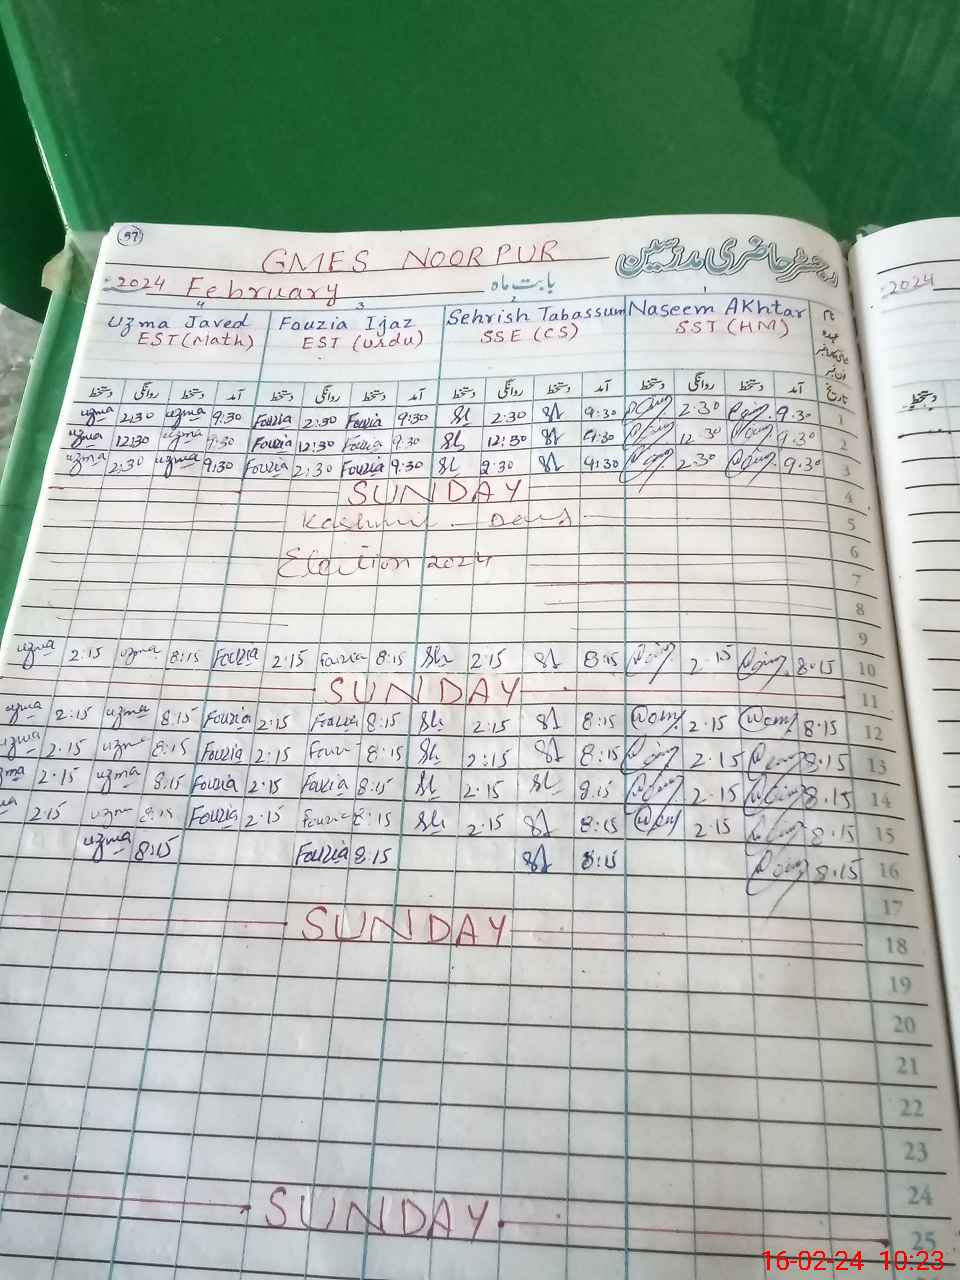 37
GMES NOORPUR رجسٹر حاضری مدرسین
2024 February بابت ماہ
4 3 2 1
Uzma Javed Fouzia Ijaz Sehrish Tabassum Naseem Akhtar نام
EST (Math) EST (Urdu) SSE (CS) SST (HM) عہدہ
دستخط روانگی دستخط آمد دستخط روانگی دستخط آمد دستخط روانگی دستخط آمد دستخط روانگی دستخط آمد تاریخ
uzma 2:30 uzma 9:30 Fouzia 2:30 Fouzia 9:30 2:30 9:30 2:30 9.30 1
uzma 12:30 uzma 9:30 Fouzia 12:30 Fouzia 9:30 12:30 9:30 12:30 9.30 2
uzma 2:30 uzma 9:30 Fouzia 2:30 Fouzia 9:30 2:30 9:30 2:30 9.30 3
SUNDAY 4
Kashmir Day 5
6
Election 2024
7
8
9
uzma 2:15 uzma 8:15 Fouzia 2:15 Fouzia 8:15 2:15 8:15 2:15 8.15 10
SUNDAY 11
uzma 2:15 uzma 8:15 Fouzia 2:15 Fouzia 8:15 2:15 8:15 2.15 8.15 12
uzma 2.15 uzma 8:15 Fouzia 2:15 8:15 2:15 8:15 2.15 8.15 13
2.15 uzma 8.15 Fouzia 2.15 Fouzia 8:15 2.15 8.15 2.15 8.15 14
2:15 8:15 Fouzia 2:15 8:15 2:15 8:15 2.15 8.15 15
uzma 8:15 Fouzia 8:15 8:15 8.15 16
17
SUNDAY 18
19
20
21
22
23
24
SUNDAY 25
2024
دستخط
16-02-24 10:23